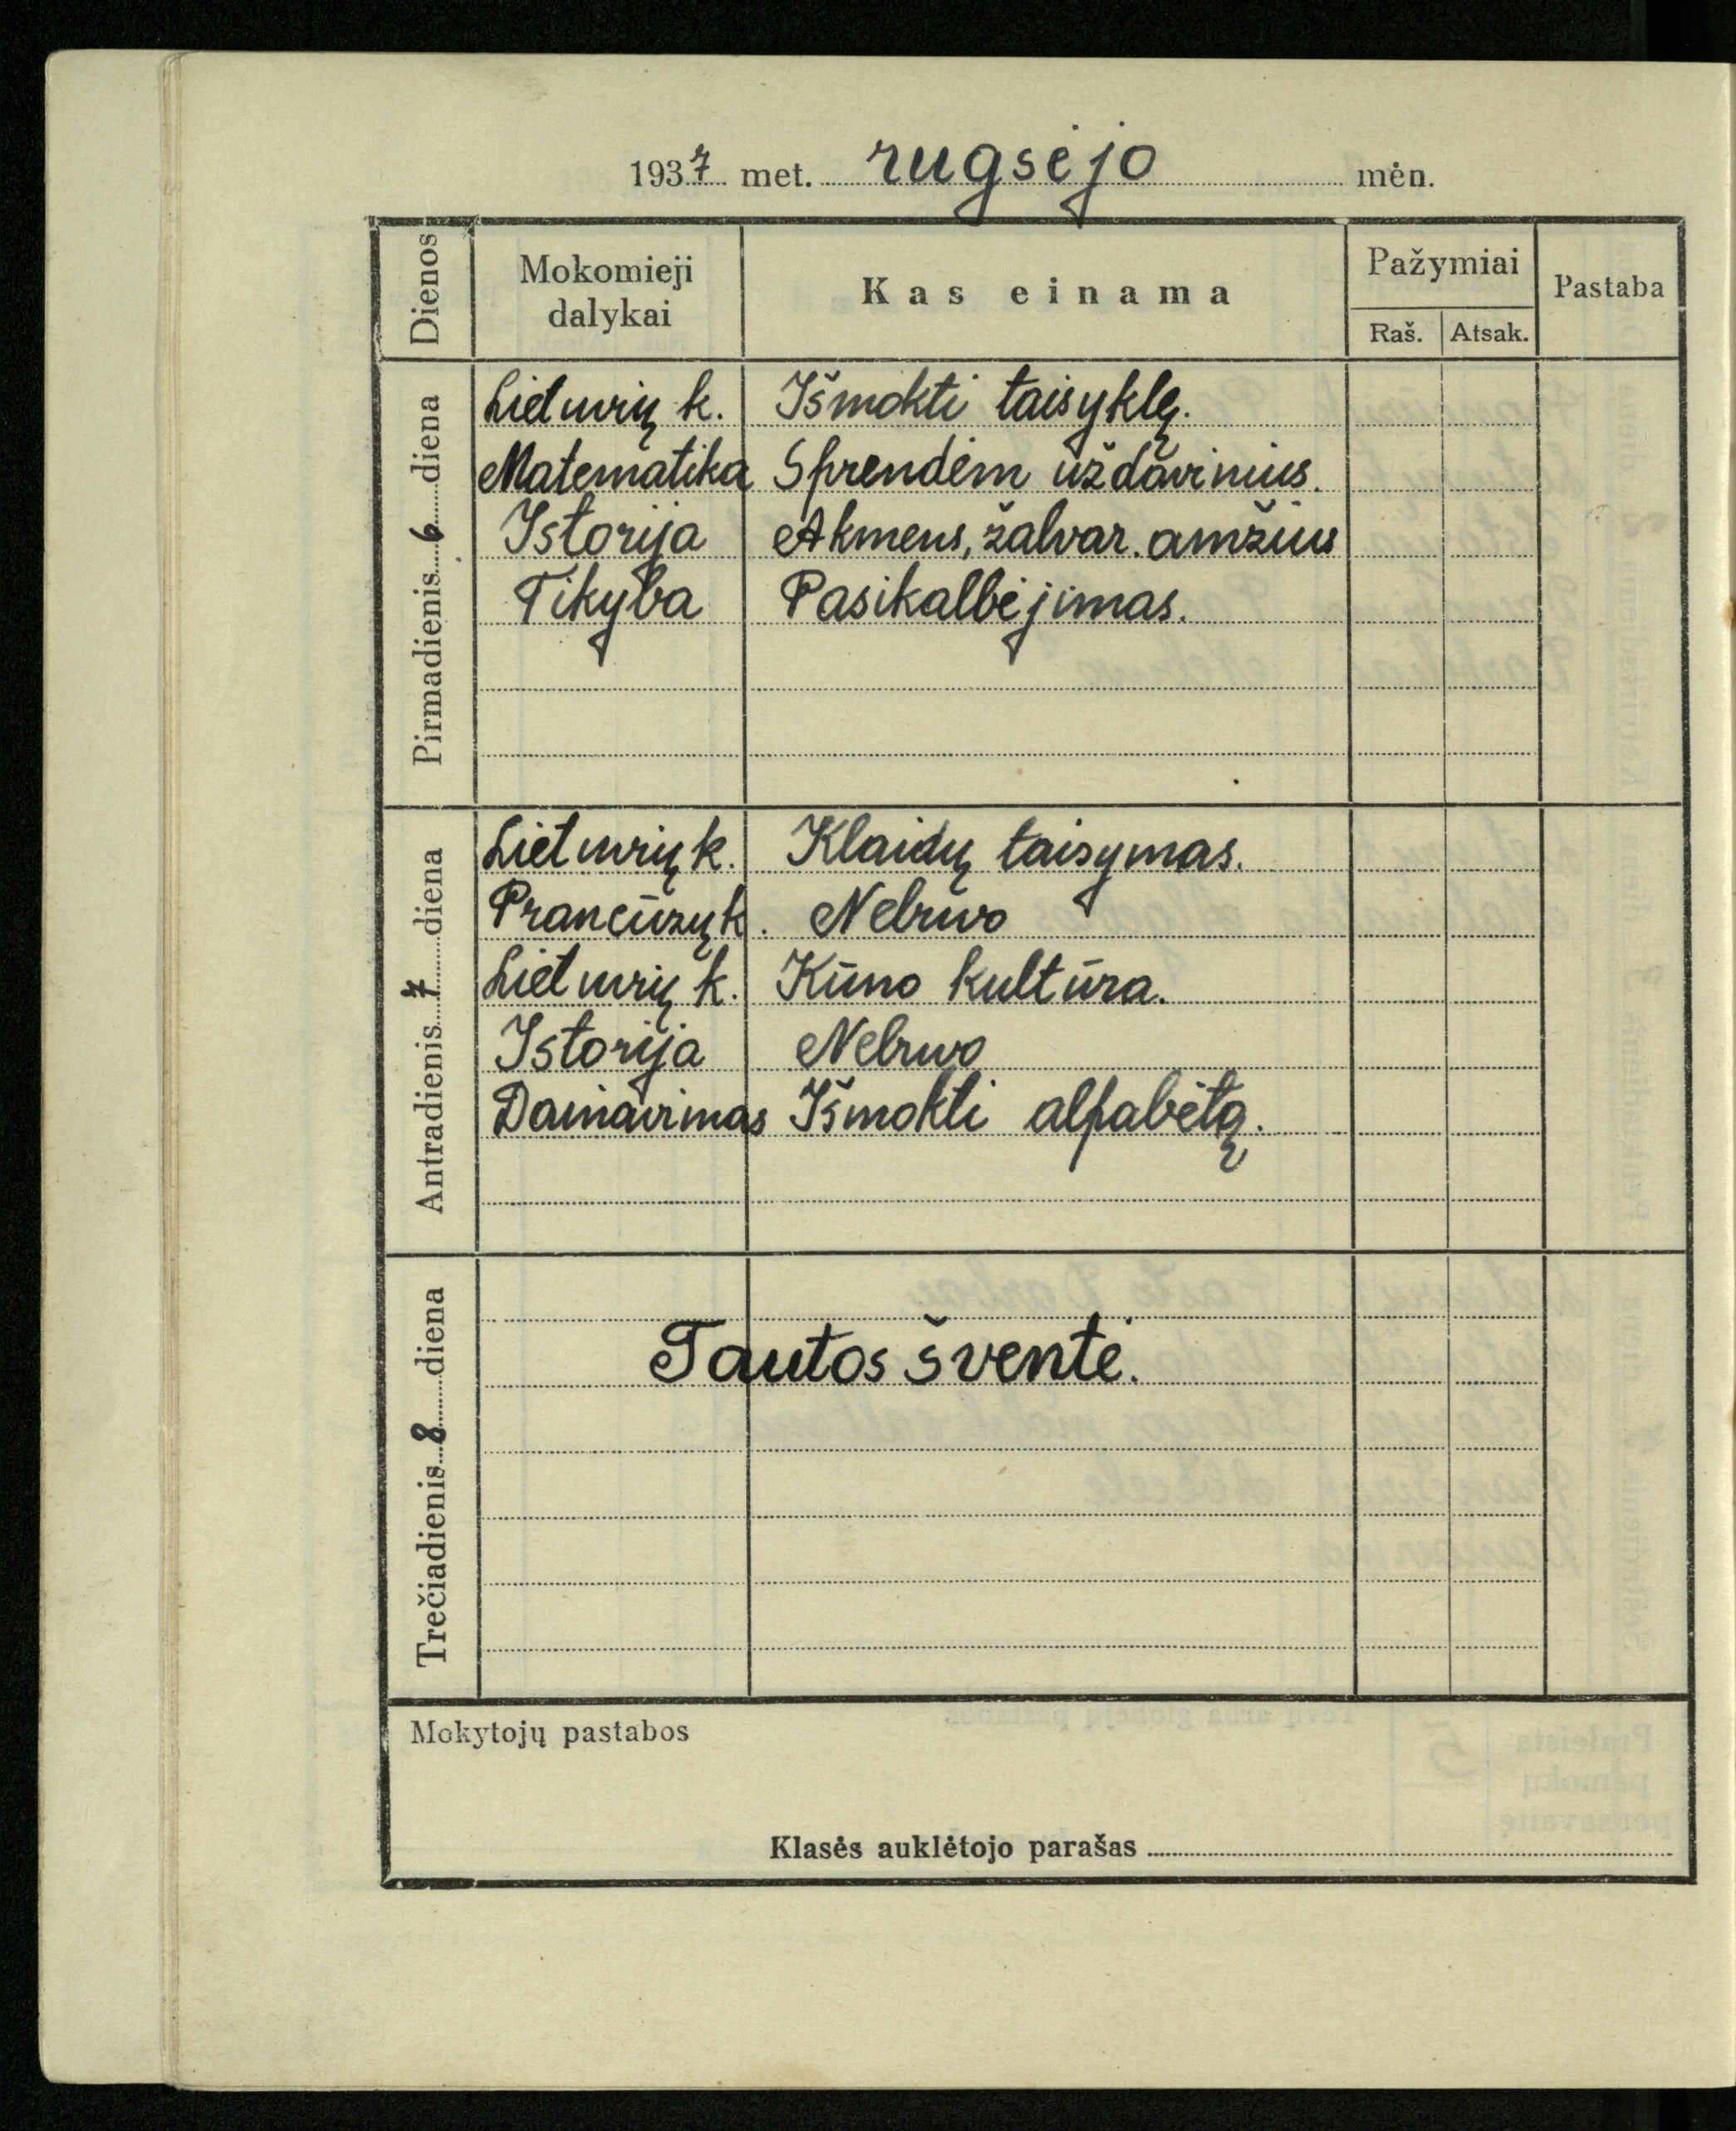 1937 met. rugsėjo mėn.
Dienos
Mokomieji dalykai
Kas einama
Pažymiai
Raš. Atsak.
Pastaba
Pirmadienis 6 diena
Lietuvių k. Išmokti taisyklę.
Matematika Sprendėm uždavinius.
Istorija Akmens, žalvar. amžius
Tikyba Pasikalbėjimas.
Antradienis 7 diena
Lietuvių k. Klaidų taisymas.
Prancūzų k. Nebuvo
Lietuvių k. Kūno kultūra.
Istorija Nebuvo
Dainavimas Išmokti alfabėtą.
Trečiadienis 8 diena
Tautos šventė.
Mokytojų pastabos
Klasės auklėtojo parašas